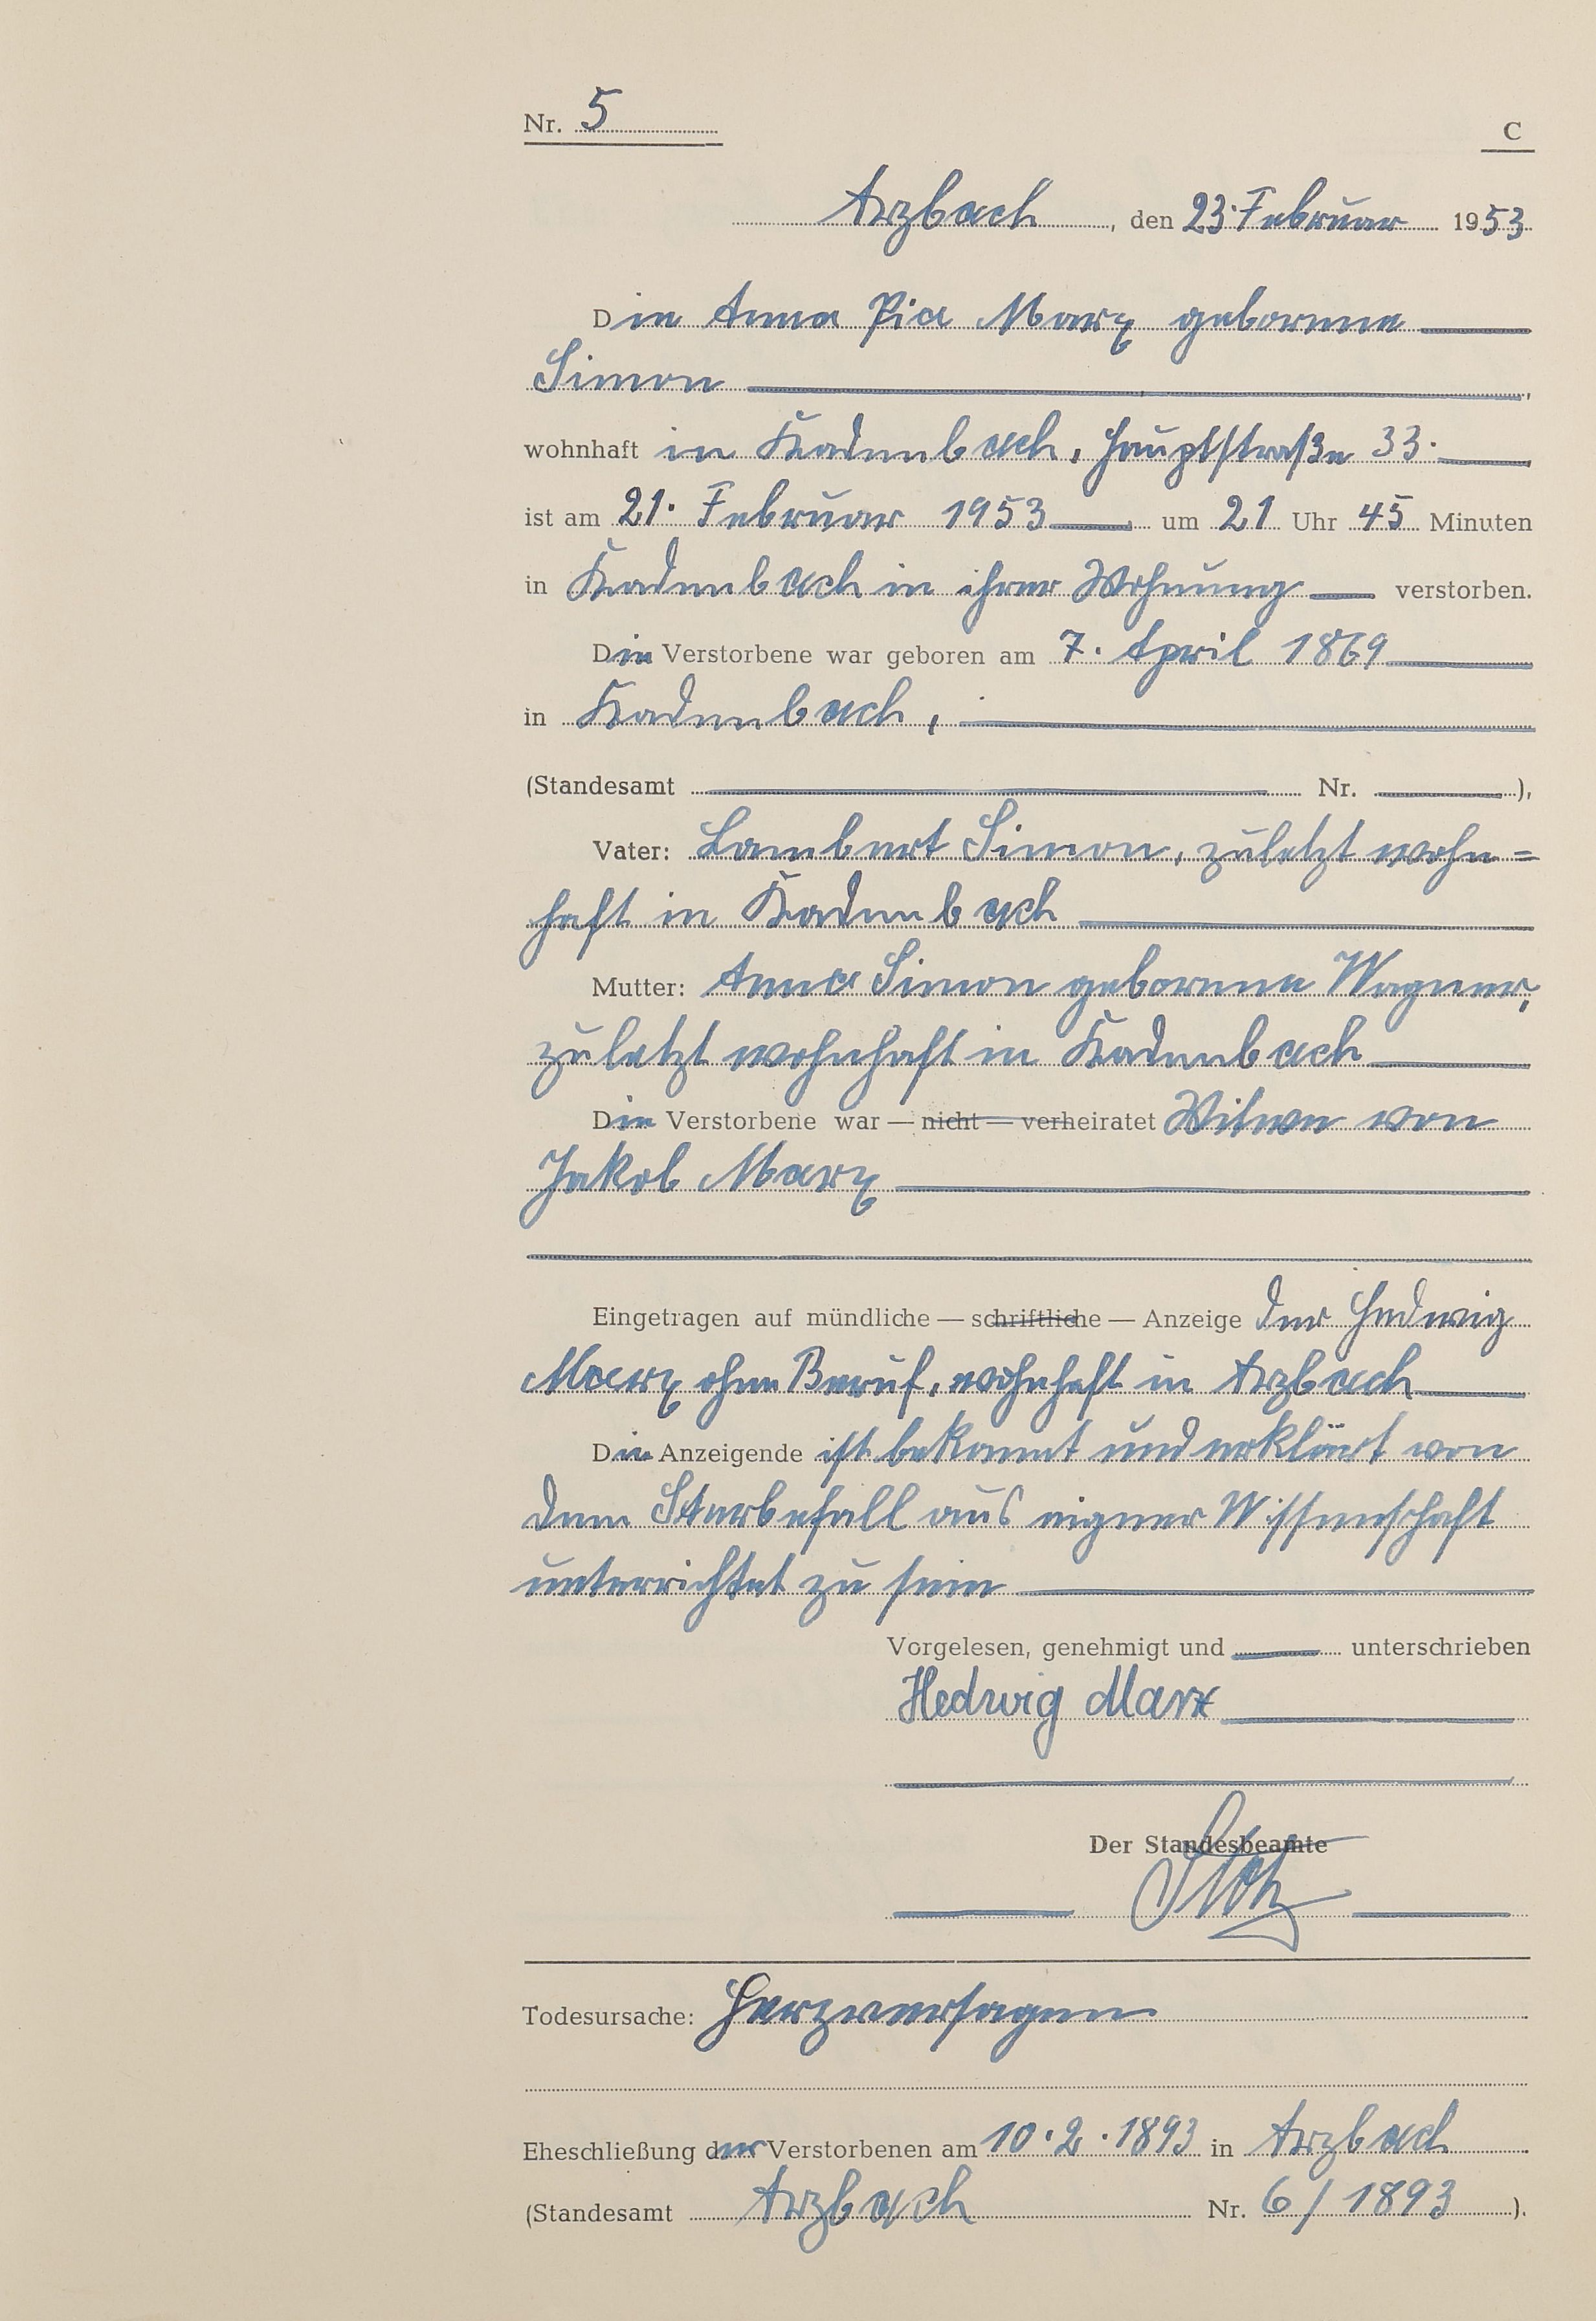 Nr. 5 C
Arzbach, den 23. Februar 1953
Die Anna Pia Marx geborene
Simon,
wohnhaft in Kadenbach, Hauptstraße 33.
ist am 21. Februar 1953 um 21 Uhr 45 Minuten
in Kadenbach in ihrer Wohnung verstorben.
Die Verstorbene war geboren am 7. April 1869
in Kadenbach,
(Standesamt Nr. ),
Vater: Lambert Simon, zuletzt wohn=
haft in Kadenbach
Mutter: Anna Simon geborene Wagner,
zuletzt wohnhaft in Kadenbach
Die Verstorbene war — nicht — verheiratet Witwe von
Jakob Marx
Eingetragen auf mündliche — schriftliche — Anzeige der Hedwig
Marx ohne Beruf, wohnhaft in Arzbach
Die Anzeigende ist bekannt und erklärt von
dem Sterbefall aus eigner Wissenschaft
unterrichtet zu sein
Vorgelesen, genehmigt und unterschrieben
Hedwig Marx
Der Standesbeamte
Todesursache: Herzversagen
Eheschließung der Verstorbenen am 10.2.1893 in Arzbach
(Standesamt Arzbach Nr. 6/1893 ).